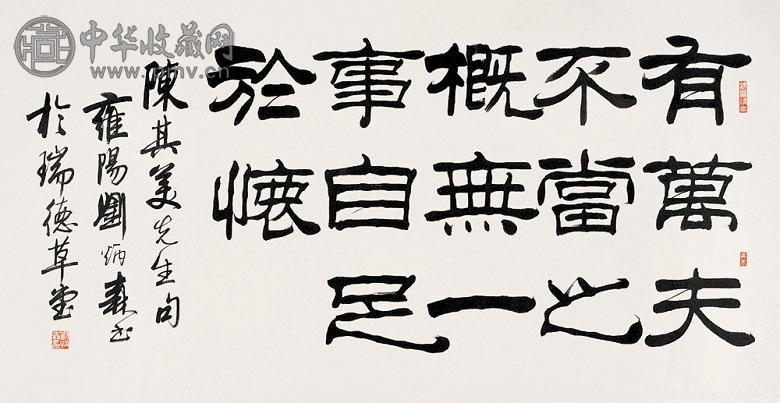 中华收藏网
有萬夫
不當之
概無一
事自足
於懷
陳其美先生句
雍陽劉炳森书
於瑞德草堂